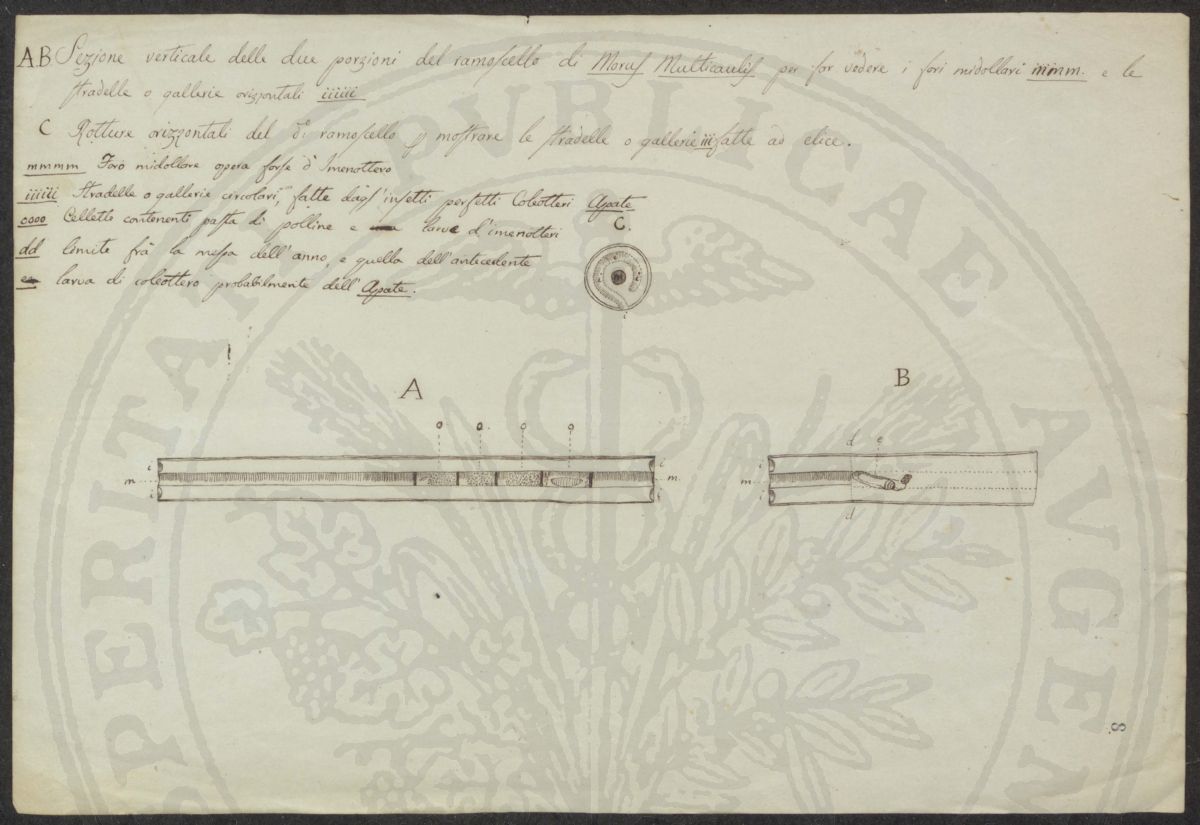 AB Sezione verticale delle due porzioni del ramoscello di Morus Multicaulis per far vedere i fori midollari mmm. e le
stradelle o gallerie orizzontali iiiiii
C Rotture orizzontali del do ramoscello p mostrare le stradelle o gallerie iii fatte ad elice.
mmmm Foro midollare opera forse d'Imenottero
iiiiii Stradelle o gallerie circolari, fatte dagl'insetti perfetti Coleotteri Apate
oooo Cellette contenenti pasta di polline e larve d'imenotteri
dd limite frà la messa dell'anno, e quella dell'antecedente
e larva di coleottero probabilmente dell'Apate.
C.
i
A
B
o o. o o
d e
i i i
m m. m
i i i
d
8
PERITA PVBLICAE AVGEN